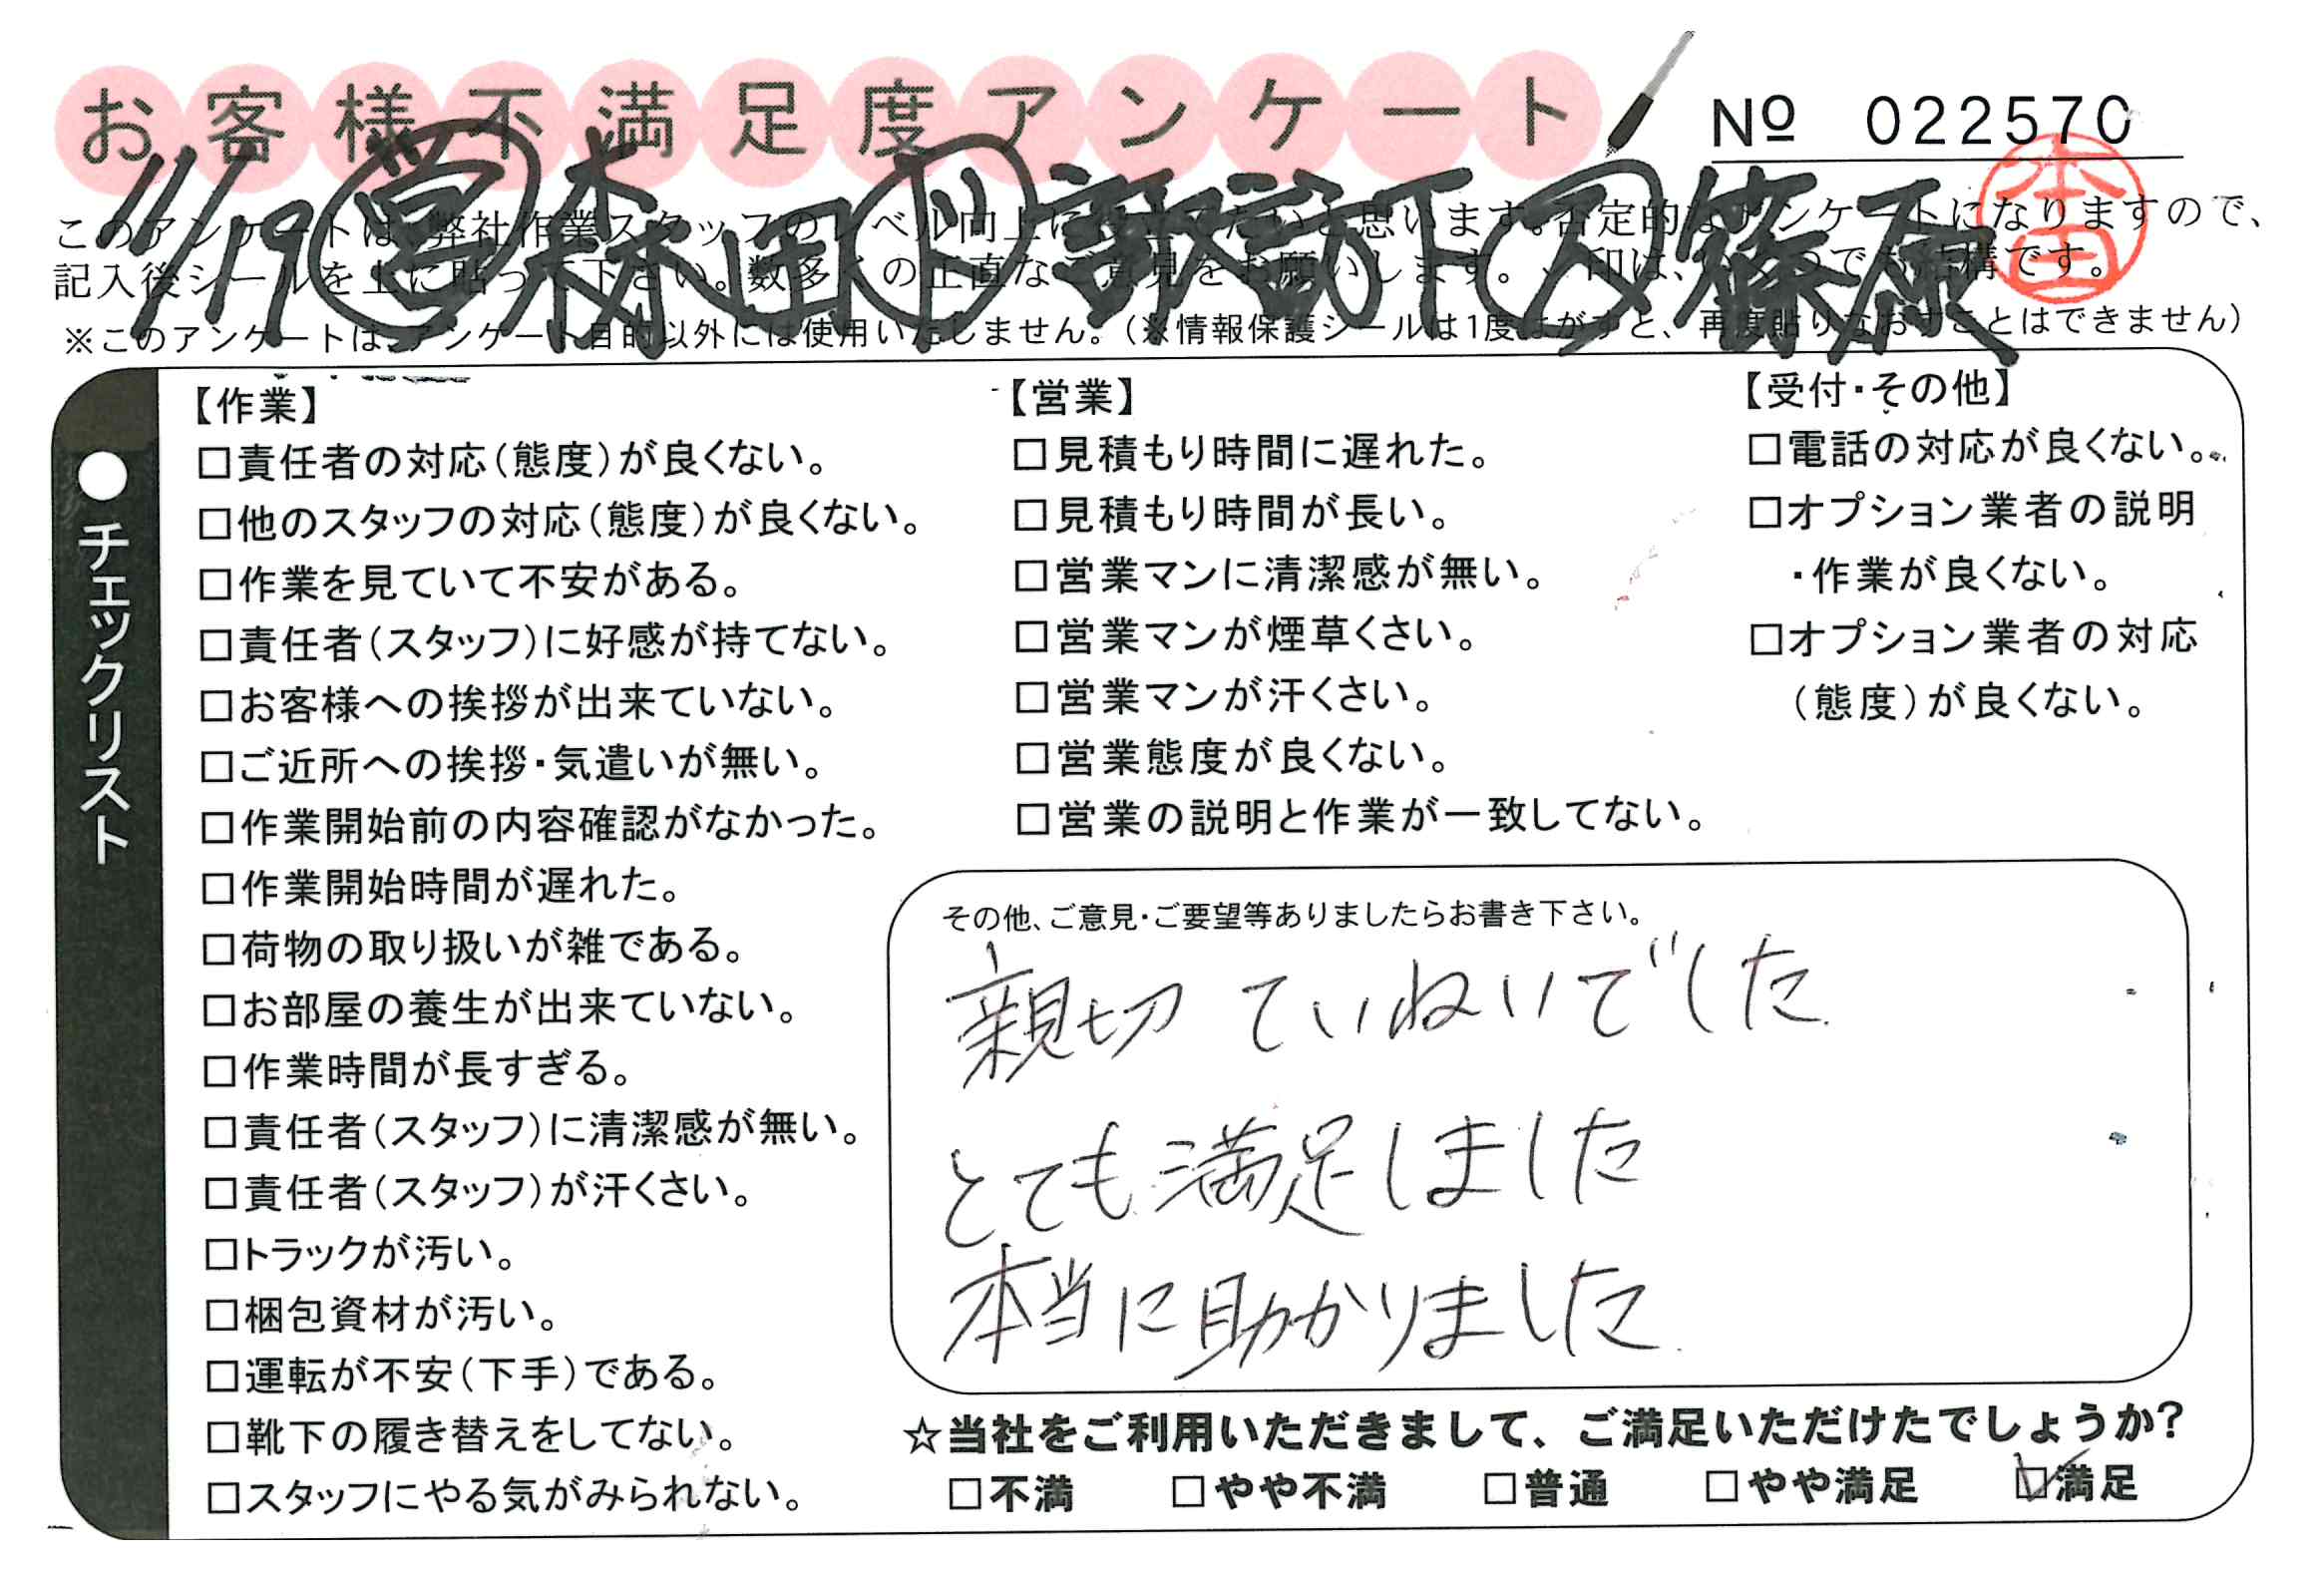 お客様不満足度アンケート
№ 022570
11/19 営 森田 ド 諏訪下 人 篠原
本田
このアンケートは、弊社作業スタッフのレベル向上に役立てたいと思います。否定的なアンケートになりますので、
記入後シールを上に貼って下さい。数多くの正直なご意見をお願いします。
※このアンケートは、アンケート目的以外には使用いたしません。(※情報保護シールは1度はがすと、再度貼りなおすことはできません)
●チェックリスト
【作業】
□責任者の対応(態度)が良くない。
□他のスタッフの対応(態度)が良くない。
□作業を見ていて不安がある。
□責任者(スタッフ)に好感が持てない。
□お客様への挨拶が出来ていない。
□ご近所への挨拶・気遣いが無い。
□作業開始前の内容確認がなかった。
□作業開始時間が遅れた。
□荷物の取り扱いが雑である。
□お部屋の養生が出来ていない。
□作業時間が長すぎる。
□責任者(スタッフ)に清潔感が無い。
□責任者(スタッフ)が汗くさい。
□トラックが汚い。
□梱包資材が汚い。
□運転が不安(下手)である。
□靴下の履き替えをしてない。
□スタッフにやる気がみられない。
【営業】
□見積もり時間に遅れた。
□見積もり時間が長い。
□営業マンに清潔感が無い。
□営業マンが煙草くさい。
□営業マンが汗くさい。
□営業態度が良くない。
□営業の説明と作業が一致してない。
【受付・その他】
□電話の対応が良くない。
□オプション業者の説明
・作業が良くない。
□オプション業者の対応
(態度)が良くない。
その他、ご意見・ご要望等ありましたらお書き下さい。
親切 ていねいでした
とても満足しました
本当に助かりました
☆当社をご利用いただきまして、ご満足いただけたでしょうか?
□不満 □やや不満 □普通 □やや満足 ☑満足